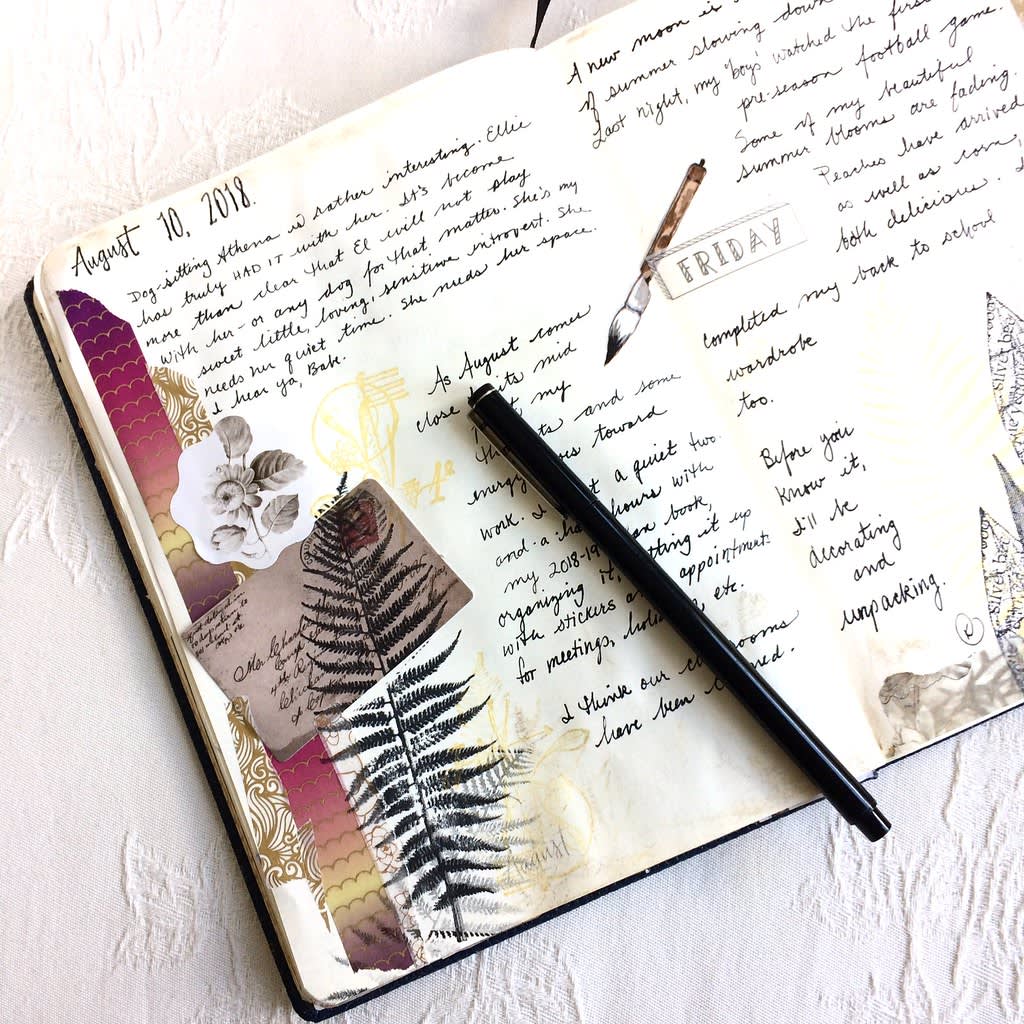 August 10, 2018.
Dog-sitting Athena is rather interesting. Ellie
has truly HAD IT with her. It's become
more than clear that El will not play
with her - or any dog for that matter. She's my
sweet little, loving, sensitive introvert. She
needs her quiet time. She needs her space.
I hear ya, Bah.
As August comes
close its mid
my
and some
energy toward
work. a quiet two
and-a- hours with
my 2018-19 book,
organizing it, it up
with stickers appointment
for meetings, etc.
I think our rooms
have been
August
A new moon is
of summer slowing down
Last night, my "boys" watched the first
pre-season football game.
Some of my beautiful
summer blooms are fading.
Peaches have arrived
as well as corn,
both delicious. I
FRIDAY
completed my back to school
wardrobe
too.
Before you
know it,
I'll be
decorating
and
unpacking.